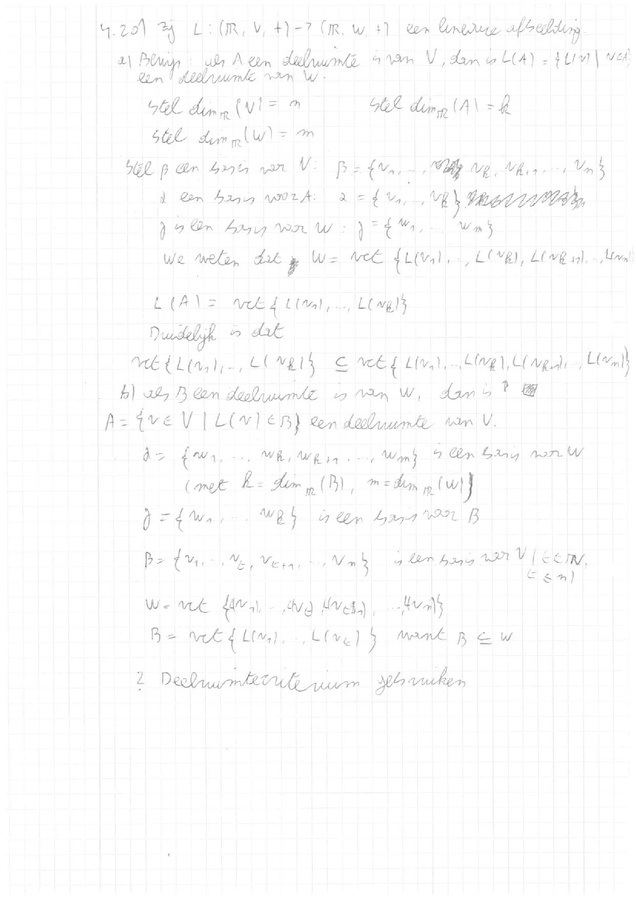 4.20) Zij L : (ℝ, V, +) → (ℝ, W, +) een lineaire afbeelding.
a) Bewijs : als A een deelruimte is van V, dan is L(A) = {L(v) | v∈A}
een deelruimte van W.
Stel dim_ℝ(V) = n Stel dim_ℝ(A) = k
Stel dim_ℝ(W) = m
Stel β een basis voor V: β = {v₁, ..., v_k, v_k+1, ..., v_n}
α een basis voor A: α = {v₁, ..., v_k}
γ is een basis voor W : γ = {w₁, ... w_m}
We weten dat W = vct {L(v₁), ..., L(v_k), L(v_k+1), ..., L(v_n)}
L(A) = vct {L(v₁), ..., L(v_k)}
Duidelijk is dat
vct {L(v₁), ..., L(v_k)} ⊆ vct {L(v₁), ..., L(v_k), L(v_k+1), ..., L(v_n)}
b) als B een deelruimte is van W, dan is ?
A = {v ∈ V | L(v) ∈ B} een deelruimte van V.
α = {w₁, ... w_k, w_k+1, ..., w_m} is een basis voor W
(met k = dim_ℝ(B), m = dim_ℝ(W))
γ = {w₁, ... w_k} is een basis voor B
β = {v₁, ... v_t, v_t+1, ..., v_n} is een basis voor V (t ∈ ℕ,
t ≤ n)
W = vct {L(v₁), ..., L(v_t), L(v_t+1), ..., L(v_n)}
B = vct {L(v₁), ..., L(v_t)} want B ⊆ W
? Deelruimtecriterium gebruiken